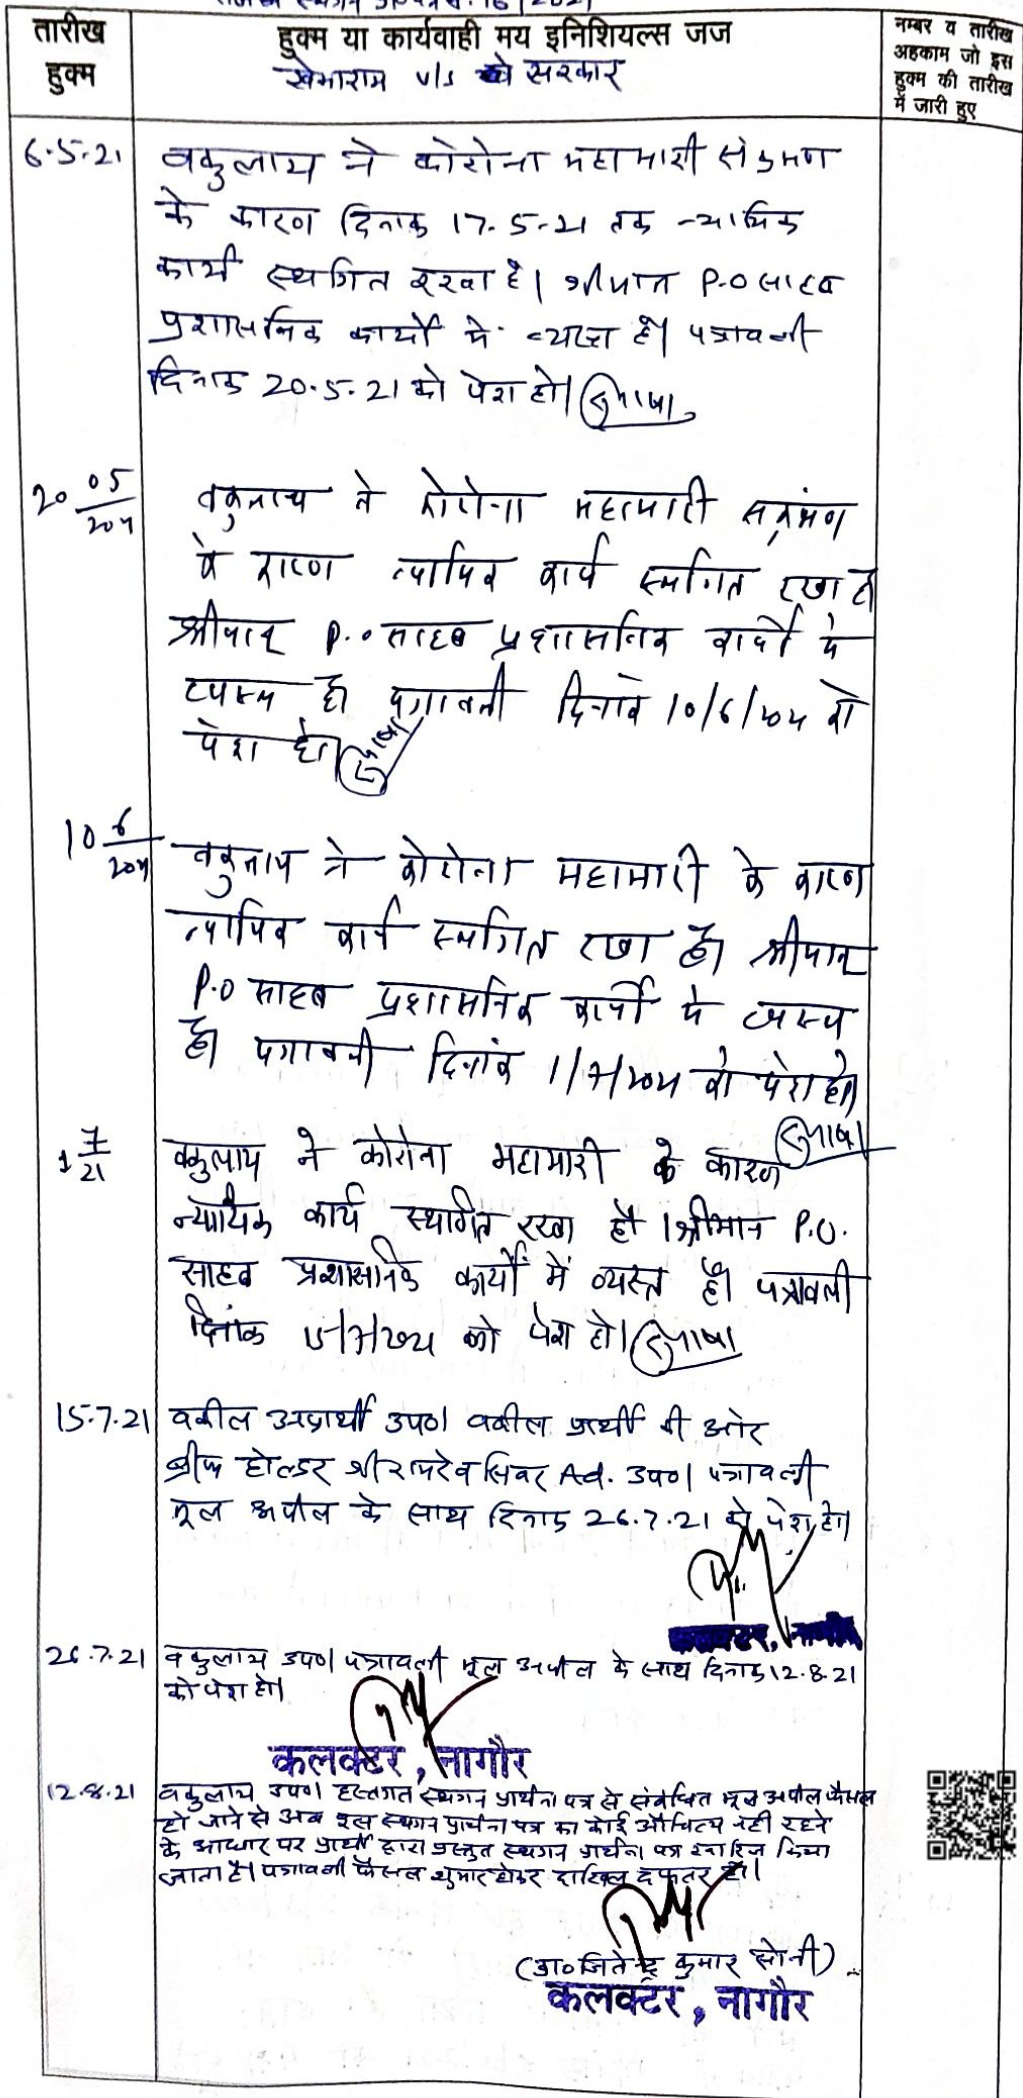 तारीख
हुक्म
हुक्म या कार्यवाही मय इनिशियल्स जज
खेमाराम v/s सरकार
नम्बर व तारीख
अहकाम जो इस
हुक्म की तारीख
में जारी हुए
6.5.21
वकुलाय ने कोरोना महामारी संक्रमण
के कारण दिनांक 17.5.21 तक न्यायिक
कार्य स्थगित रखा है। श्रीमान P.O साहब
प्रशासनिक कार्यो मे व्यस्त है। पत्रावली
दिनांक 20.5.21 को पेश हो।
20 05/2021
वकुलाय ने कोरोना महामारी सक्रमंण
के कारण न्यायिक कार्य स्थगित रखा है
श्रीमान P.O साहब प्रशासनिक कार्यो मे
व्यस्त है। पत्रावली दिनांक 10/6/2021 को
पेश हो।
10 6/2021
वकुलाय ने कोरोना महामारी के कारण
न्यायिक कार्य स्थगित रखा है। श्रीमान
P.O साहब प्रशासनिक कार्यो मे व्यस्त
है। पत्रावली दिनांक 1/7/2021 को पेश हो।
1 7/21
वकुलाय ने कोरोना महामारी के कारण
न्यायिक कार्य स्थगित रखा है। श्रीमान P.O.
साहब प्रशासनिक कार्यों में व्यस्त है। पत्रावली
दिनांक 15/7/2021 को पेश हो।
15.7.21
वकील अप्रार्थी उप०। वकील प्रार्थी की ओर
ब्रीफ होल्डर श्री रामदेव सिवर Ad. उप०। पत्रावली
मूल अपील के साथ दिनांक 26.7.21 को पेश हो।
कलक्टर, नागौर
26.7.21
वकुलाय उप०। पत्रावली मूल अपील के साथ दिनांक 12.8.21
को पेश हो।
कलक्टर, नागौर
12.8.21
वकुलाय उप०। हस्तगत स्थगन प्रार्थना पत्र से संबंधित मूल अपील फैसल
हो जाने से अब इस स्थगन प्रार्थना पत्र का कोई औचित्य नही रहने
के आधार पर प्रार्थी द्वारा प्रस्तुत स्थगन प्रार्थना पत्र खारिज किया
जाता है। पत्रावली फैसल शुमार होकर दाखिल दफ्तर हो।
(डा० जितेन्द्र कुमार सोनी)
कलक्टर, नागौर